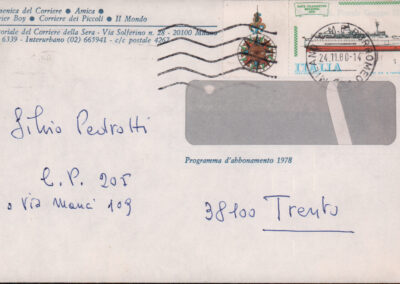 menica del Corriere • Amica •
rier Boy • Corriere dei Piccoli • Il Mondo
toriale del Corriere della Sera - Via Solferino n. 28 - 20100 Milano
6339 - Interurbano 02/665941 - c/c postale 4267
24.11.80-14
ITALIA
Silvio Pedrotti
Programma d'abbonamento 1978
C.P. 205
o Via Manci 109
38100 Trento